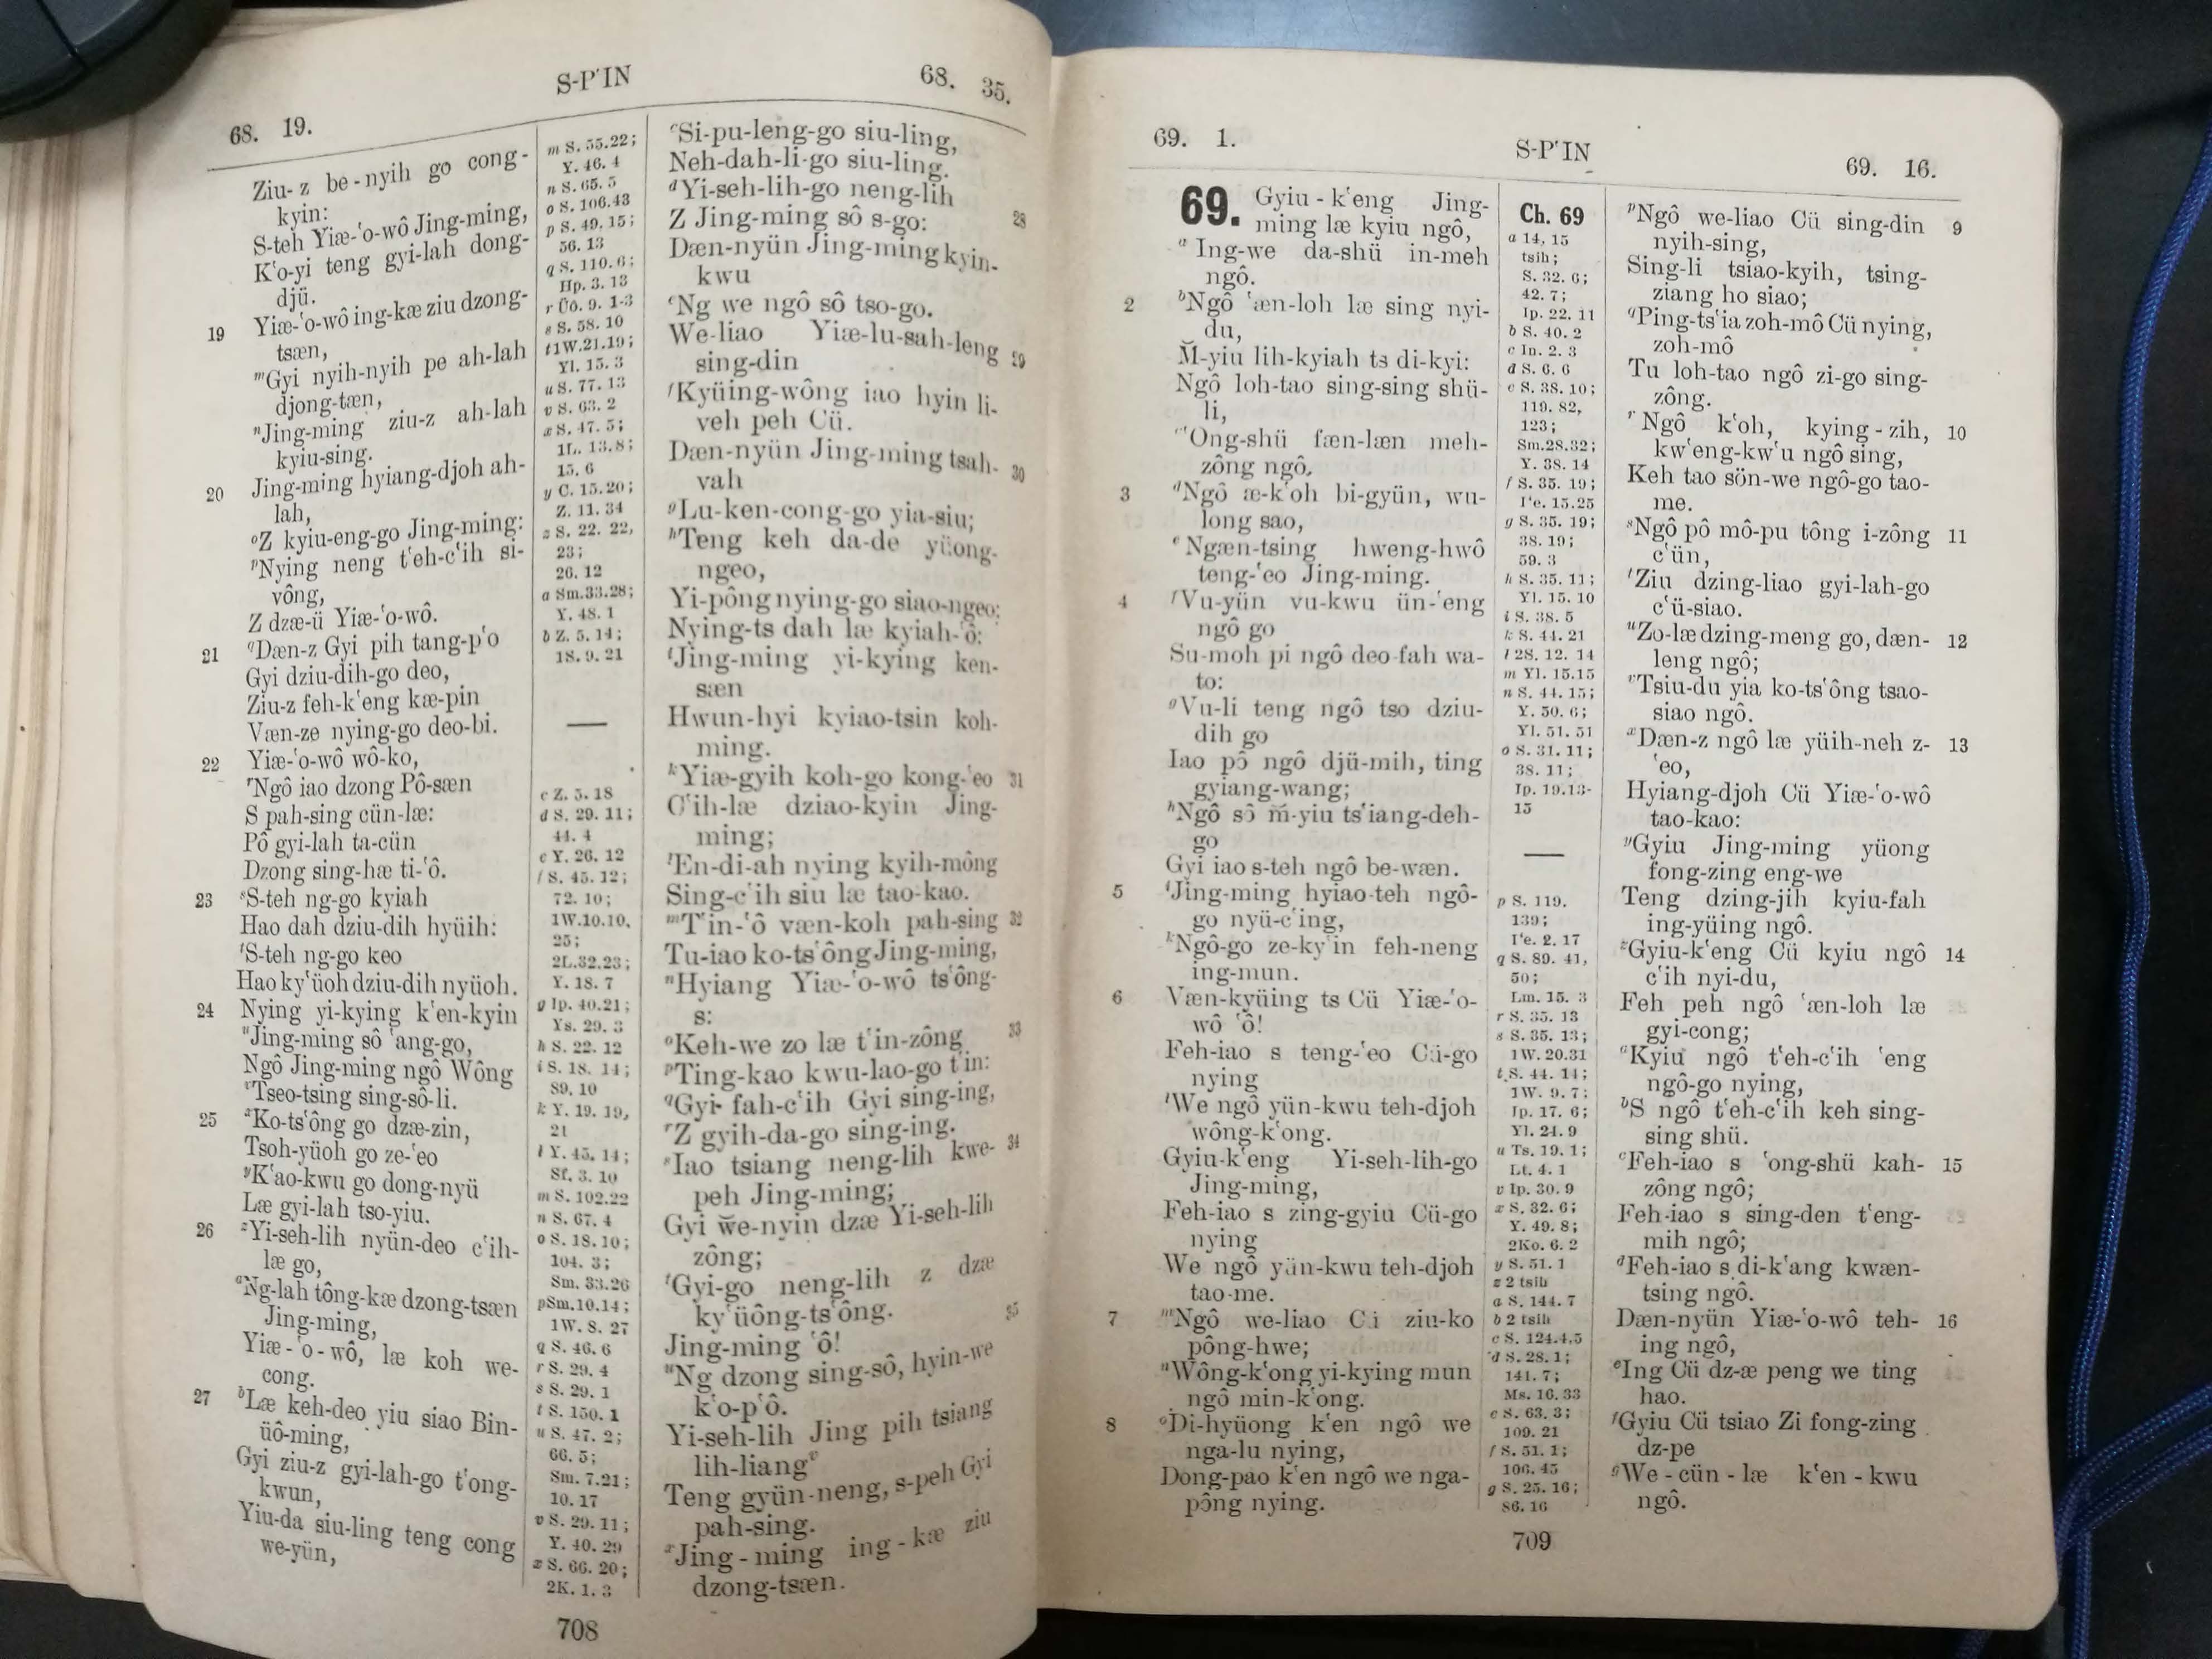 S-P'IN
68. 35.
68. 19.
Ziu-z be-nyih go cong-
kyin:
S-teh Yiæ-'o-wô Jing-ming,
K'o-yi teng gyi-lah dong-
djü.
19 Yiæ-'o-wô ing-kæ ziu dzong-
tsæn,
mGyi nyih-nyih pe ah-lah
djong-tæn,
nJing-ming ziu-z ah-lah
kyiu-sing.
20 Jing-ming hyiang-djoh ah-
lah,
oZ kyiu-eng-go Jing-ming:
pNying neng t'eh-c'ih si-
vông,
Z dzæ-ü Yiæ-'o-wô.
21 qDæn-z Gyi pih tang-p'o
Gyi dziu-dih-go deo,
Ziu-z feh-k'eng kæ-pin
Væn-ze nying-go deo-bi.
22 Yiæ-'o-wô wô-ko,
rNgô iao dzong Pô-sæn
S pah-sing cün-læ:
Pô gyi-lah ta-cün
Dzong sing-hæ ti-'ô.
23 sS-teh ng-go kyiah
Hao dah dziu-dih hyüih:
tS-teh ng-go keo
Hao ky'üoh dziu-dih nyüoh.
24 Nying yi-kying k'en-kyin
uJing-ming sô 'ang-go,
Ngô Jing-ming ngô Wông
vTseo-tsing sing-sô-li.
25 xKo-ts'ông go dzæ-zin,
Tsoh-yüoh go ze-'eo
yK'ao-kwu go dong-nyü
Læ gyi-lah tso-yiu.
26 zYi-seh-lih nyün-deo c'ih-
læ go,
aNg-lah tông-kæ dzong-tsæn
Jing-ming,
Yiæ-'o-wô, læ koh we-
cong.
27 bLæ keh-deo yiu siao Bin-
üô-ming,
Gyi ziu-z gyi-lah-go t'ong-
kwun,
Yiu-da siu-ling teng cong
we-yün,
m S. 55.22;
Y. 46. 4
n S. 65. 5
o S. 106.43
p S. 49. 15;
56. 13
q S. 110. 6;
Hp. 3. 13
r Üo. 9. 1-3
s S. 58. 10
t 1W.21.19;
Yl. 15. 3
u S. 77. 13
v S. 63. 2
x S. 47. 5;
1L. 13.8;
15. 6
y C. 15.20;
Z. 11. 34
z S. 22. 22,
23;
26. 12
a Sm.33.28;
Y. 48. 1
b Z. 5. 14;
18. 9. 21
c Z. 5. 18
d S. 29. 11;
44. 4
e Y. 26. 12
f S. 45. 12;
72. 10;
1W.10.10,
25;
2L.32.23;
Y. 18. 7
g Ip. 40.21;
Ys. 29. 3
h S. 22. 12
i S. 18. 14;
89. 10
k Y. 19. 19,
21
l Y. 45. 14;
Sf. 3. 10
m S. 102.22
n S. 67. 4
o S. 18. 10;
104. 3;
Sm. 33.26
pSm.10.14;
1W. 8. 27
q S. 46. 6
r S. 29. 4
s S. 29. 1
t S. 150. 1
u S. 47. 2;
66. 5;
Sm. 7.21;
10. 17
v S. 29. 11;
Y. 40. 29
x S. 66. 20;
2K. 1. 3
cSi-pu-leng-go siu-ling,
Neh-dah-li-go siu-ling.
dYi-seh-lih-go neng-lih
Z Jing-ming sô s-go: 28
Dæn-nyün Jing-ming kyin-
kwu
eNg we ngô sô tso-go.
We-liao Yiæ-lu-sah-leng 29
sing-din
fKyüing-wông iao hyin li-
veh peh Cü.
Dæn-nyün Jing-ming tsah- 30
vah
gLu-ken-cong-go yia-siu;
hTeng keh da-de yüong-
ngeo,
Yi-pông nying-go siao-ngeo;
Nying-ts dah læ kyiah-'ô:
iJing-ming yi-kying ken-
sæn
Hwun-hyi kyiao-tsin koh-
ming.
kYiæ-gyih koh-go kong-'eo 31
C'ih-læ dziao-kyin Jing-
ming;
lEn-di-ah nying kyih-mông
Sing-c'ih siu læ tao-kao.
mT'in-'ô væn-koh pah-sing 32
Tu-iao ko-ts'ông Jing-ming,
nHyiang Yiæ-'o-wô ts'ông-
s:
oKeh-we zo læ t'in-zông 33
pTing-kao kwu-lao-go t'in:
qGyi fah-c'ih Gyi sing-ing,
rZ gyih-da-go sing-ing.
sIao tsiang neng-lih kwe- 34
peh Jing-ming;
Gyi we-nyin dzæ Yi-seh-lih
zông;
tGyi-go neng-lih z dzæ
ky'üông-ts'ông.
Jing-ming 'ô! 35
uNg dzong sing-sô, hyin-we
k'o-p'ô.
Yi-seh-lih Jing pih tsiang
lih-liangv
Teng gyün-neng, s-peh Gyi
pah-sing.
xJing-ming ing-kæ ziu
dzong-tsæn.
708
69. 1.
S-P'IN
69. 16.
69. Gyiu-k'eng Jing-
ming læ kyiu ngô,
aIng-we da-shü in-meh
ngô.
2 bNgô 'æn-loh læ sing nyi-
du,
M̆-yiu lih-kyiah ts di-kyi:
Ngô loh-tao sing-sing shü-
li,
c'Ong-shü fæn-læn meh-
zông ngô.
3 dNgô æ-k'oh bi-gyün, wu-
long sao,
eNgæn-tsing hweng-hwô
teng-'eo Jing-ming.
4 fVu-yün vu-kwu ün-'eng
ngô go
Su-moh pi ngô deo-fah wa-
to:
gVu-li teng ngô tso dziu-
dih go
Iao pô ngô djü-mih, ting
gyiang-wang;
hNgô sô m̆-yiu ts'iang-deh-
go
Gyi iao s-teh ngô be-wæn.
5 iJing-ming hyiao-teh ngô-
go nyü-c'ing,
kNgô-go ze-ky'in feh-neng
ing-mun.
6 Væn-kyüing ts Cü Yiæ-'o-
wô 'ô!
Feh-iao s teng-'eo Cü-go
nying
lWe ngô yün-kwu teh-djoh
wông-k'ong.
Gyiu-k'eng Yi-seh-lih-go
Jing-ming,
Feh-iao s zing-gyiu Cü-go
nying
We ngô yün-kwu teh-djoh
tao-me.
7 mNgô we-liao Cü ziu-ko
pông-hwe;
nWông-k'ong yi-kying mun
ngô min-k'ong.
8 oDi-hyüong k'en ngô we
nga-lu nying,
Dong-pao k'en ngô we nga-
pông nying.
Ch. 69
a 14, 15
tsih;
S. 32. 6;
42. 7;
Ip. 22. 11
b S. 40. 2
c In. 2. 3
d S. 6. 6
e S. 38. 10;
119. 82,
123;
Sm.28.32;
Y. 38. 14
f S. 35. 19;
I'e. 15.25
g S. 35. 19;
38. 19;
59. 3
h S. 35. 11;
Yl. 15. 10
i S. 38. 5
k S. 44. 21
l 2S. 12. 14
m Yl. 15.15
n S. 44. 15;
Y. 50. 6;
Yl. 51. 51
o S. 31. 11;
38. 11;
Ip. 19.13-
15
p S. 119.
139;
I'e. 2. 17
q S. 89. 41,
50;
Lm. 15. 3
r S. 35. 13
s S. 35. 13;
1W. 20.31
t S. 44. 14;
1W. 9. 7;
Ip. 17. 6;
Yl. 24. 9
u Ts. 19. 1;
Lt. 4. 1
v Ip. 30. 9
x S. 32. 6;
Y. 49. 8;
2Ko. 6. 2
y S. 51. 1
z 2 tsih
a S. 144. 7
b 2 tsih
c S. 124.4,5
d S. 28. 1;
141. 7;
Ms. 16. 33
e S. 63. 3;
109. 21
f S. 51. 1;
106. 45
g S. 25. 16;
86. 16
pNgô we-liao Cü sing-din 9
nyih-sing,
Sing-li tsiao-kyih, tsing-
ziang ho siao;
qPing-ts'ia zoh-mô Cü nying,
zoh-mô
Tu loh-tao ngô zi-go sing-
zông.
rNgô k'oh, kying-zih, 10
kw'eng-kw'u ngô sing,
Keh tao sön-we ngô-go tao-
me.
sNgô pô mô-pu tông i-zông 11
c'ün,
tZiu dzing-liao gyi-lah-go
c'ü-siao.
uZo-læ dzing-meng go, dæn- 12
leng ngô;
vTsiu-du yia ko-ts'ông tsao-
siao ngô.
xDæn-z ngô læ yüih-neh z- 13
'eo,
Hyiang-djoh Cü Yiæ-'o-wô
tao-kao:
yGyiu Jing-ming yüong
fong-zing eng-we
Teng dzing-jih kyiu-fah
ing-yüing ngô.
zGyiu-k'eng Cü kyiu ngô 14
c'ih nyi-du,
Feh peh ngô 'æn-loh læ
gyi-cong;
aKyiu ngô t'eh-c'ih 'eng
ngô-go nying,
bS ngô t'eh-c'ih keh sing-
sing shü.
cFeh-iao s 'ong-shü kah- 15
zông ngô;
Feh-iao s sing-den t'eng-
mih ngô;
dFeh-iao s di-k'ang kwæn-
tsing ngô.
Dæn-nyün Yiæ-'o-wô teh- 16
ing ngô,
eIng Cü dz-æ peng we ting
hao.
fGyiu Cü tsiao Zi fong-zing
dz-pe
gWe-cün-læ k'en-kwu
ngô.
709